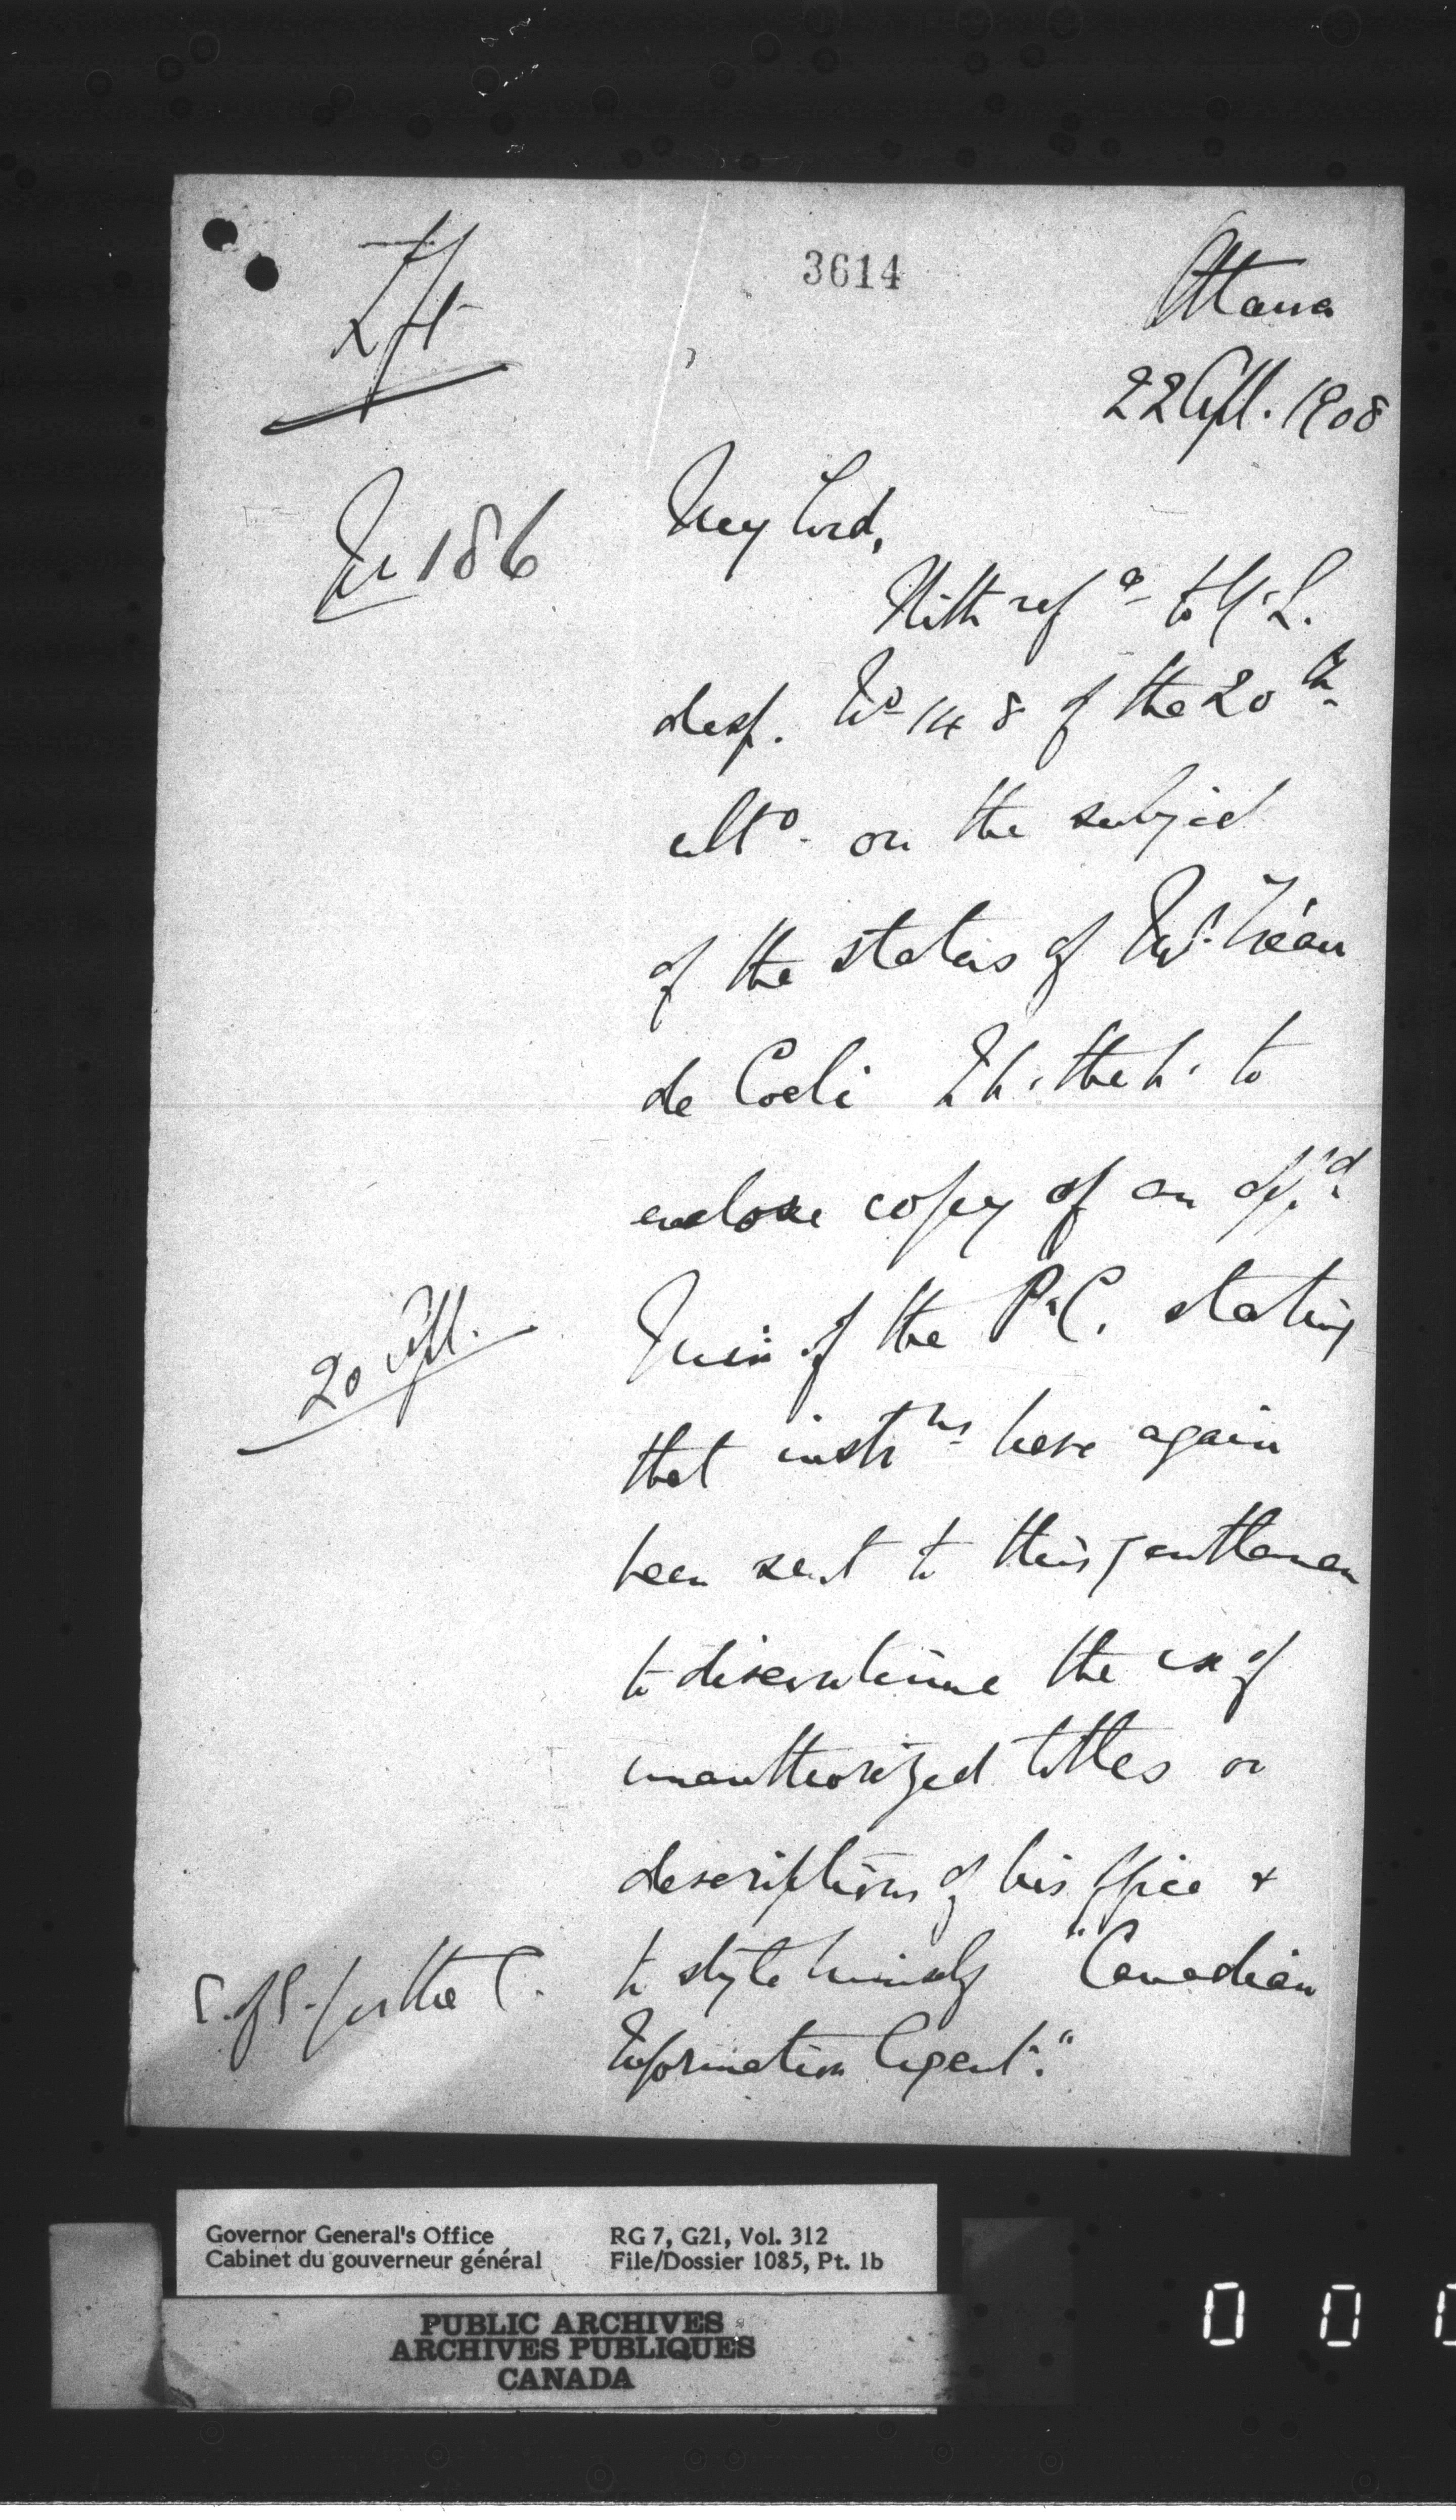 Dft
3614
Ottawa
22 Apl. 1908
No 186
My Lord,
With ref ce to Y.L.
desp. No 148 of the 20th
ulto. on the subject
of the status of Mr. Tréau
de Coeli I h. the h. to
enclose copy of an app'd
20 Apl.
Min. of the P.C. stating
that instrns have again
been sent to this gentleman
to discontinue the use of
unauthorized titles or
descriptions of his office &
to style himself "Canadian
S. of S. for the C.
Information Agent."
Governor General's Office
Cabinet du gouverneur général
RG 7, G21, Vol. 312
File/Dossier 1085, Pt. 1b
PUBLIC ARCHIVES
ARCHIVES PUBLIQUES
CANADA
0 0